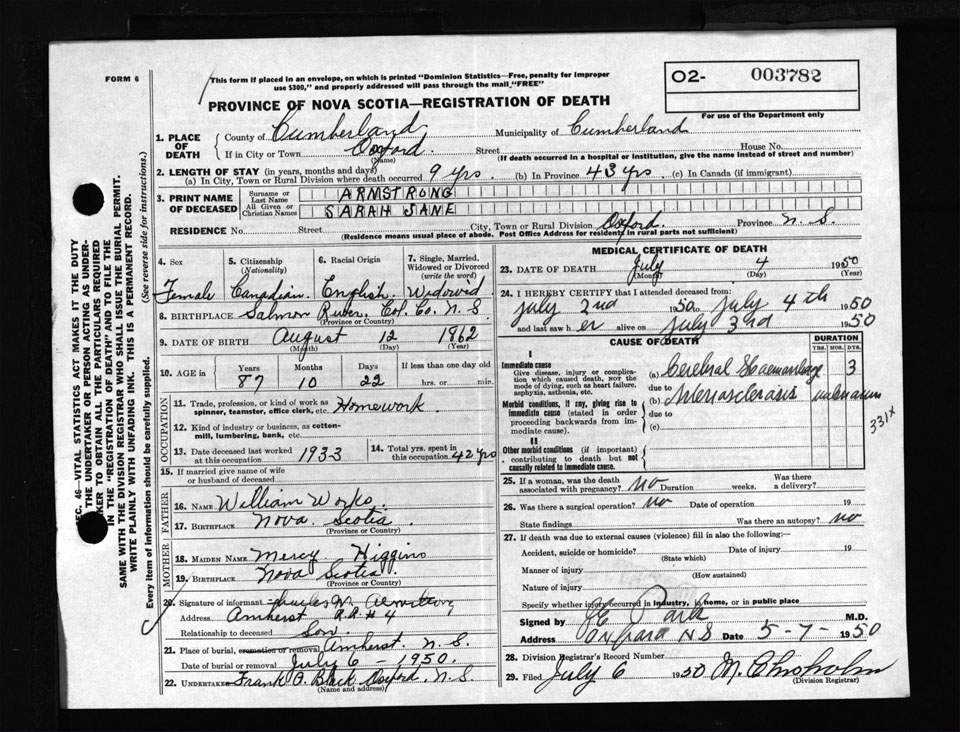 FORM 6
This form if placed in an envelope, on which is printed "Dominion Statistics—Free, penalty for improper
use $300," and properly addressed will pass through the mail, "FREE"
O2- 003782
For use of the Department only
PROVINCE OF NOVA SCOTIA—REGISTRATION OF DEATH
1. PLACE OF DEATH
County of Cumberland Municipality of Cumberland
If in City or Town Oxford Street House No.
(Name) (If death occurred in a hospital or institution, give the name instead of street and number)
2. LENGTH OF STAY (in years, months and days)
(a) In City, Town or Rural Division where death occurred 9 yrs. (b) In Province 43 yrs. (c) In Canada (if immigrant)
3. PRINT NAME OF DECEASED
Surname or Last Name ARMSTRONG
All Given or Christian Names SARAH JANE
RESIDENCE No. Street City, Town or Rural Division Oxford. Province N. S.
(Residence means usual place of abode. Post Office Address for residents in rural parts not sufficient)
4. Sex Female
5. Citizenship (Nationality) Canadian
6. Racial Origin English
7. Single, Married, Widowed or Divorced (write the word) Widowed
8. BIRTHPLACE Salmon River. Col. Co. N. S.
(Province or Country)
9. DATE OF BIRTH August 12 1862
(Month) (Day) (Year)
10. AGE in Years Months Days If less than one day old
87 10 22 hrs. or min.
OCCUPATION
11. Trade, profession, or kind of work as spinner, teamster, office clerk, etc. Homework
12. Kind of industry or business, as cotton-mill, lumbering, bank, etc.
13. Date deceased last worked at this occupation 1933
14. Total yrs. spent in this occupation 42 yrs
15. If married give name of wife or husband of deceased
FATHER
16. Name William Works
17. BIRTHPLACE Nova Scotia
(Province or Country)
MOTHER
18. MAIDEN NAME Mercy Higgins
19. BIRTHPLACE Nova Scotia.
(Province or Country)
20. Signature of informant Charles M. Armstrong
Address Amherst R.R. # 4
Relationship to deceased Son
21. Place of burial, cremation or removal Amherst. N. S.
Date of burial or removal July 6 – 1950.
22. UNDERTAKER Frank Black Oxford. N. S
(Name and address)
MEDICAL CERTIFICATE OF DEATH
23. DATE OF DEATH July 4 1950
(Month) (Day) (Year)
24. I HEREBY CERTIFY that I attended deceased from:
July 2nd 1950 to July 4th 1950
and last saw her alive on July 3rd 1950
CAUSE OF DEATH
DURATION
YRS. MOS. DYS.
I
Immediate cause
Give disease, injury or complication which caused death, not the mode of dying, such as heart failure, asphyxia, asthenia, etc.
(a) Cerebral Haemorrhage 3
due to
Morbid conditions, if any, giving rise to immediate cause (stated in order proceeding backwards from immediate cause).
(b) Arteriosclerosis unknown
due to
(c)
331x
II
Other morbid conditions (if important) contributing to death but not causally related to immediate cause.
25. If a woman, was the death associated with pregnancy? no Duration weeks. Was there a delivery?
26. Was there a surgical operation? no Date of operation 19
State findings Was there an autopsy? no
27. If death was due to external causes (violence) fill in also the following:—
Accident, suicide or homicide? Date of injury 19
(State which)
Manner of injury
(How sustained)
Nature of injury
Specify whether injury occurred in industry, in home, or in public place
Signed by Park M.D.
Address Oxford N S Date 5-7- 1950
28. Division Registrar's Record Number
29. Filed July 6 1950 M. Chisholm
(Division Registrar)
SEC. 46—VITAL STATISTICS ACT MAKES IT THE DUTY
OF THE UNDERTAKER OR PERSON ACTING AS UNDER-
TAKER TO OBTAIN ALL THE PARTICULARS REQUIRED
IN THE "REGISTRATION OF DEATH" AND TO FILE THE
SAME WITH THE DIVISION REGISTRAR WHO SHALL ISSUE THE BURIAL PERMIT.
WRITE PLAINLY WITH UNFADING INK. THIS IS A PERMANENT RECORD.
Every item of information should be carefully supplied. (See reverse side for instructions.)